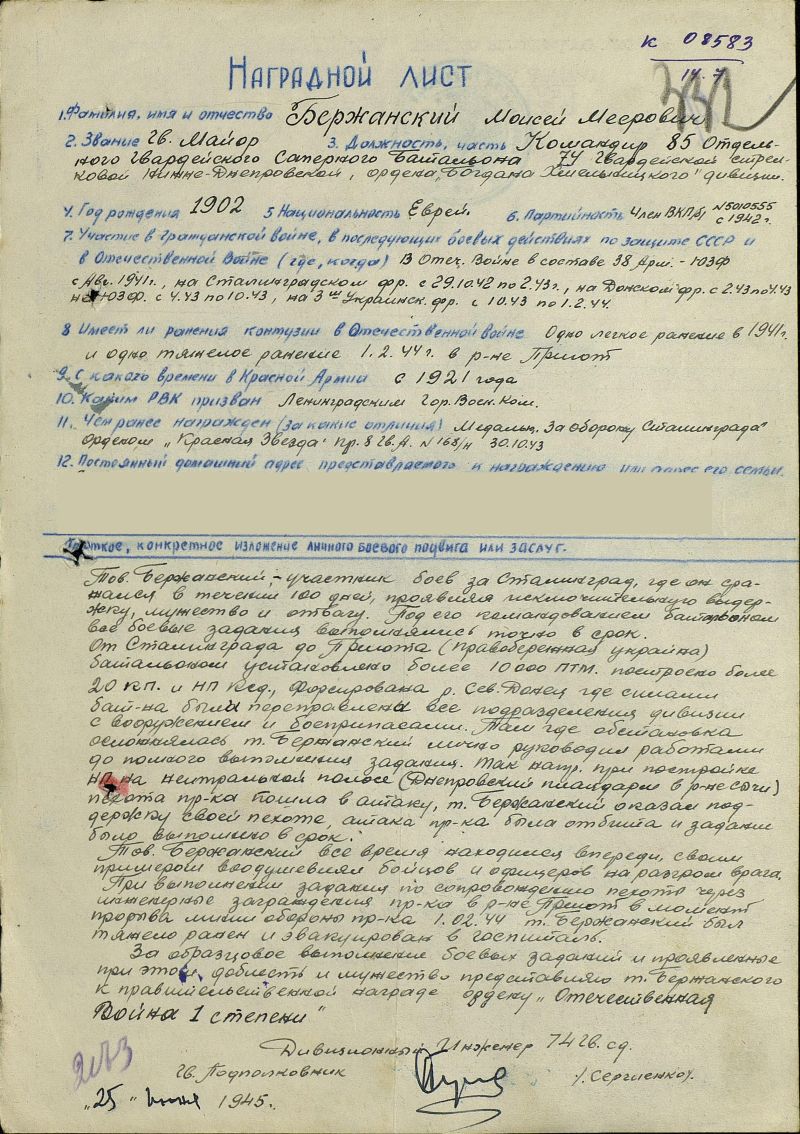 к 08583
14.7
НАГРАДНОЙ ЛИСТ
1. Фамилия, имя и отчество Бержанский Моисей Меерович
2. Звание Гв. Майор 3. Должность, часть Командир 85 Отдель-
ного Гвардейского Саперного Батальона 74 Гвардейской стрел-
ковой Нижне-Днепровской, ордена "Богдана Хмельницкого" дивизии.
4. Год рождения 1902 5 Национальность Еврей. 6. Партийность Член ВКП/б/ №5010555 с 1942 г.
7. Участие в гражданской войне, в последующих боевых действиях по защите СССР и
в Отечественной Войне (где, когда) В Отеч. Войне в составе 38 Арм. - ЮЗФ
с Авг. 1941г., на Сталинградском фр. с 29.10.42 по 2.43г., на Донском фр. с 2.43 по 4.43
на ЮЗФ. с 4.43 по 10.43, на 3м Украинск. фр. с 10.43 по 1.2.44.
8 Имеет ли ранения контузии в Отечественной войне Одно легкое ранение в 1941г.
и одно тяжелое ранение 1.2.44 г. в р-не Приют
9. С какого времени в Красной Армии с 1921 года
10. Каким РВК призван Ленинградским Гор. Воен. Ком.
11. Чем ранее награжден (за какие отличия) Медалью „За оборону Сталинграда"
Орденом „Красная Звезда" пр. 8 Гв.А. №168/н 30.10.43
12. Постоянный домашний адрес представляемого к награждению или адрес его семьи.
Краткое, конкретное изложение личного боевого подвига или заслуг.
Тов. Бержанский, - участник боев за Сталинград, где он сра-
жался в течении 100 дней, проявляя исключительную выдер-
жку, мужество и отвагу. Под его командованием батальоном
все боевые задания выполнялись точно в срок.
От Сталинграда до Приюта (правобережная украина)
батальоном установлено более 10000 ПТМ. построено более
20 КП. и НП ксд., Форсирована р. Сев. Донец где силами
бат-на были переправлены все подразделения дивизии
с вооружением и боеприпасами. Там где обстановка
осложнялась т. Бержанский лично руководил работами
до полного выполнения задания. Так напр. при постройке
НП на нейтральной полосе (Днепровский плацдарм в р-не)
пехота пр-ка пошла в атаку, т. Бержанский оказал под-
держку своей пехоте, атака пр-ка была отбита и задание
было выполнено в срок.
Тов. Бержанский все время находился впереди, своим
примером воодушевлял бойцов и офицеров на разгром врага.
При выполнении задания по сопровождению пехоты через
инженерные заграждения пр-ка в р-не Приют в момент
прорыва линии обороны пр-ка 1.02.44 т. Бержанский был
тяжело ранен и эвакуирован в госпиталь.
За образцовое выполнение боевых заданий и проявленные
при этом доблесть и мужество представляю т. Бержанского
к правительственной награде ордену „Отечественная
Война 1 степени"
Дивизионный Инженер 74 гв. сд.
Гв. Подполковник /. Сергиенко/.
„25" июня 1945.